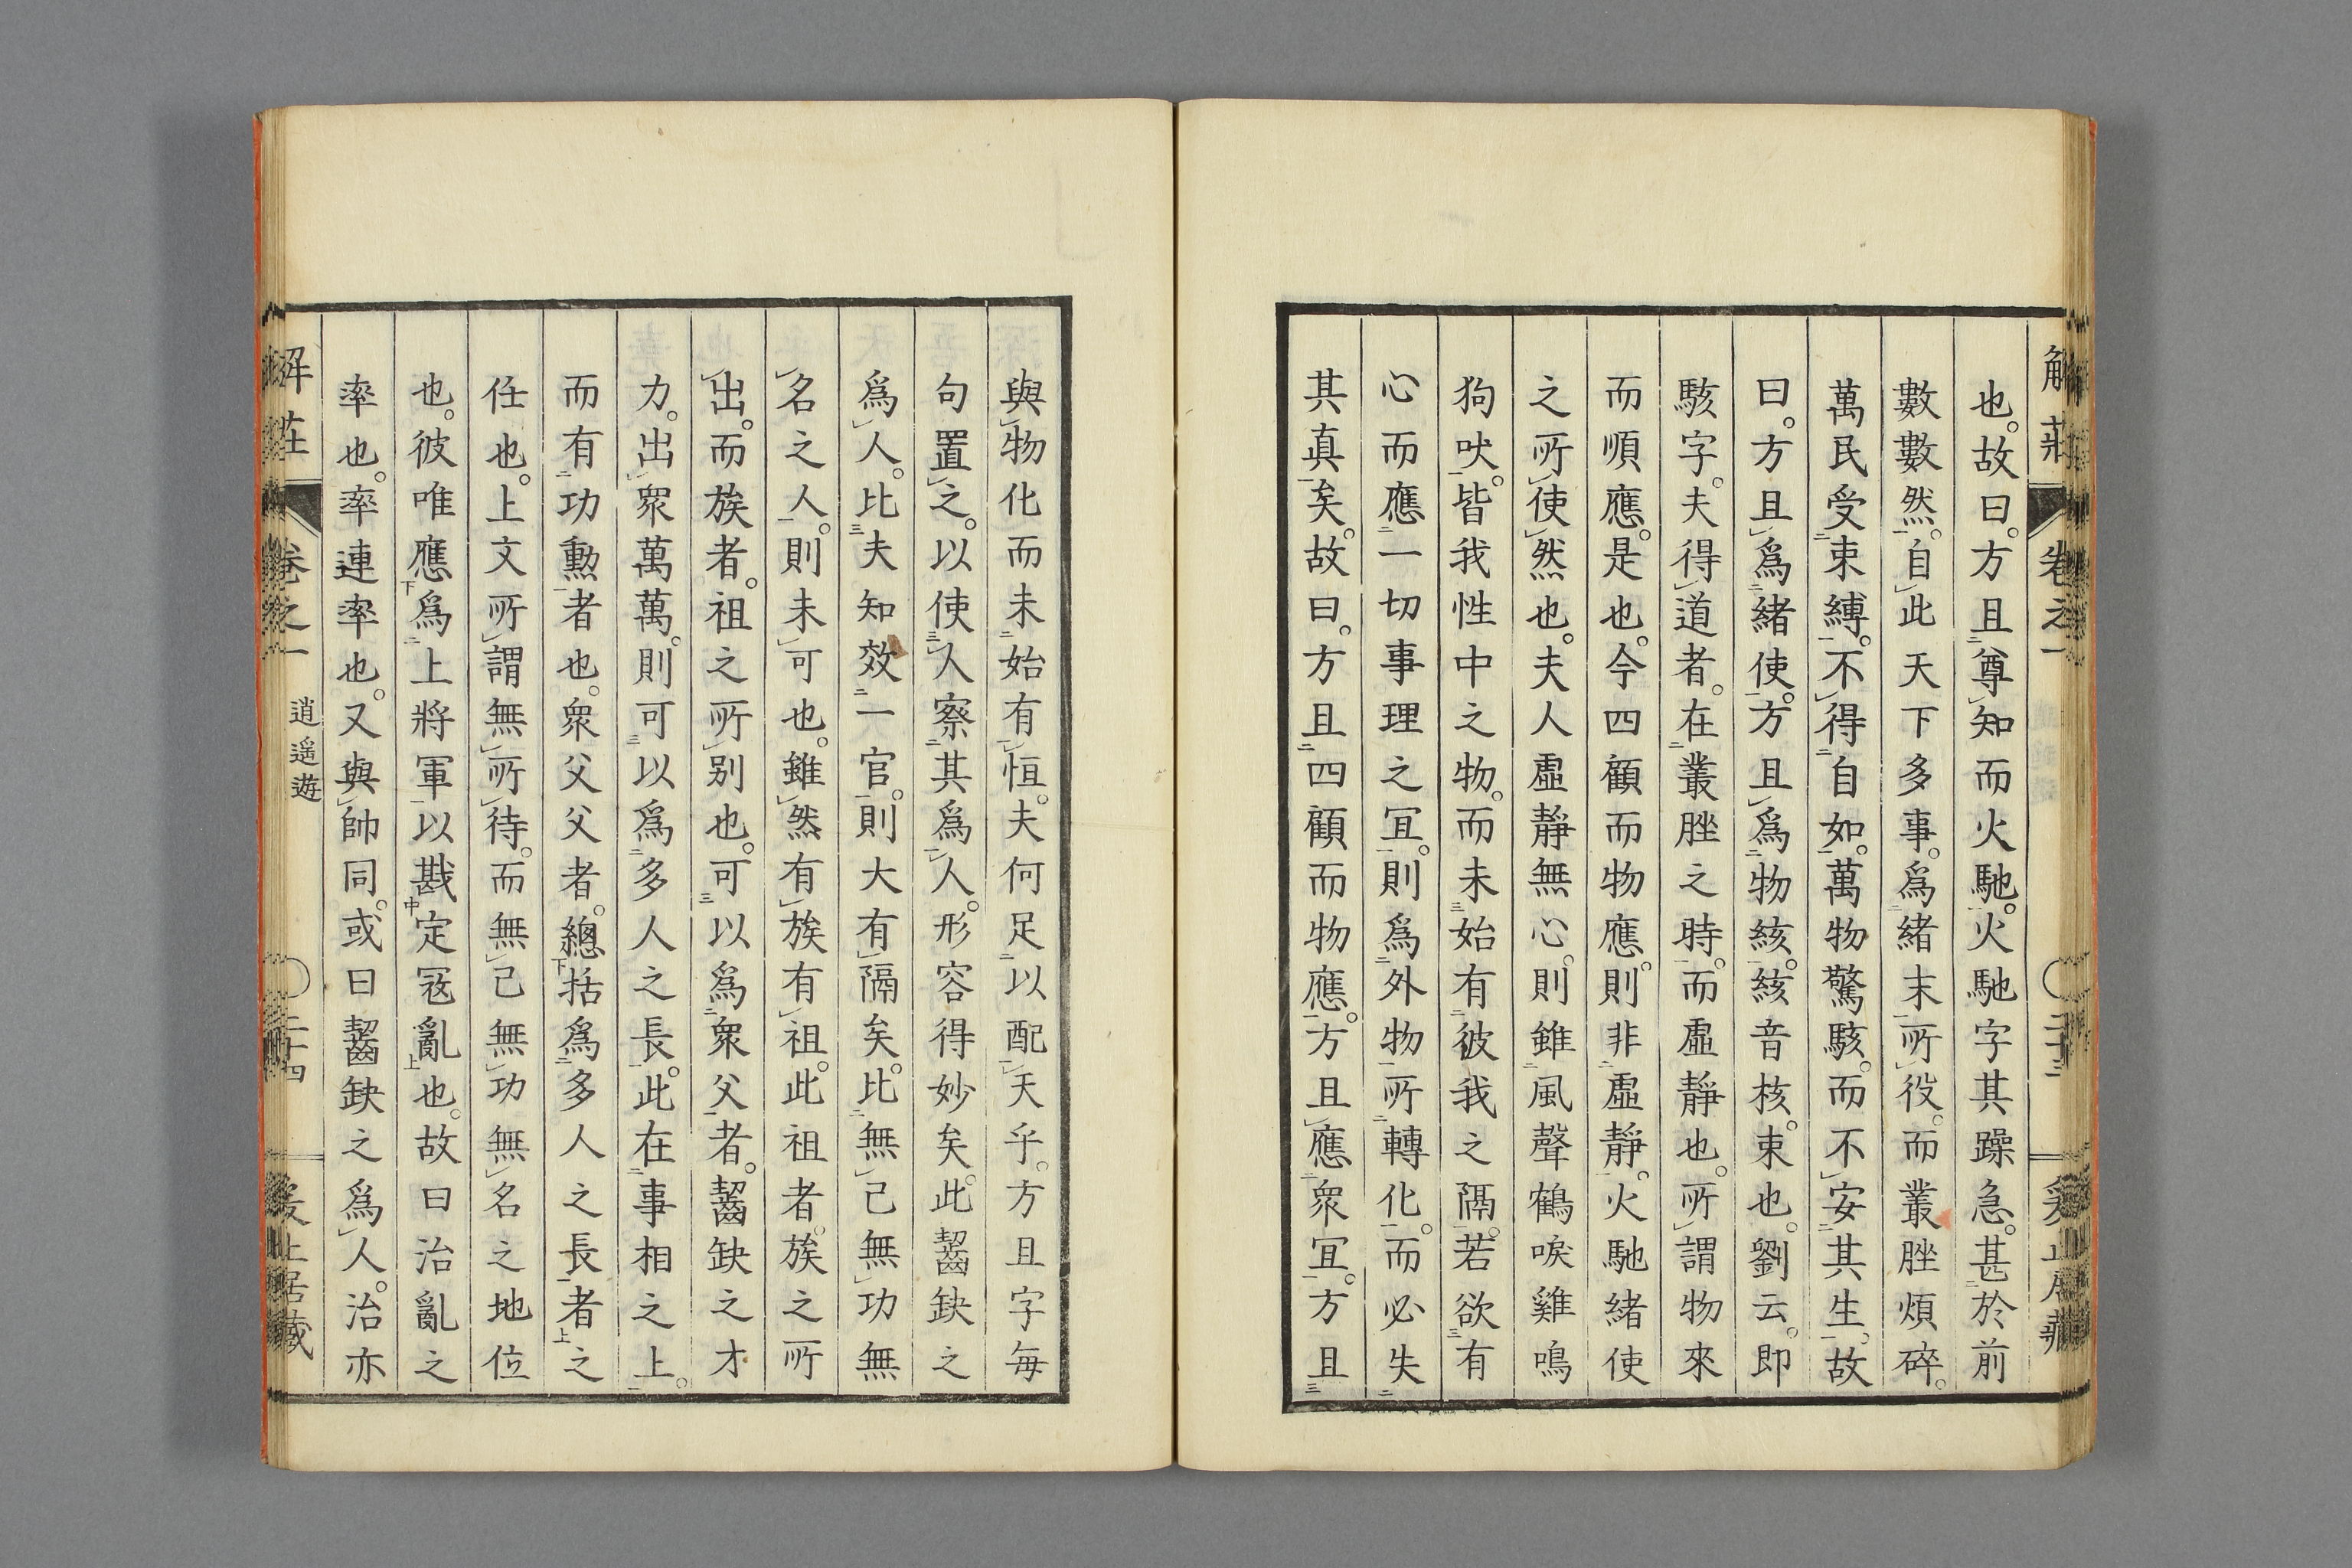 解莊 卷之一 〇二十三
也。故曰。方且尊知而火馳。火馳字其躁急。甚於前
數數然。自此天下多事。爲緒末所役。而叢脞煩碎。
萬民受束縛。不得自如。萬物驚駭。而不安其生。故
曰。方且爲緒使。方且爲物絯。絯音核。束也。劉云。即
駭字。夫得道者。在叢脞之時。而虛靜也。所謂物來
而順應。是也。今四顧而物應。則非虛靜。火馳緒使
之所使然也。夫人虛靜無心。則雖風聲鶴唳雞鳴
狗吠。皆我性中之物。而未始有彼我之隔。若欲有
心而應一切事理之冝。則爲外物所轉化。而必失
其真矣。故曰。方且四顧而物應。方且應衆冝。方且
與物化而未始有恒。夫何足以配天乎。方且字每
句置之。以使人察其爲人。形容得妙矣。此齧缺之
爲人。比夫知效一官。則大有隔矣。比無己無功無
名之人。則未可也。雖然有族有祖。此祖者。族之所
出。而族者。祖之所別也。可以爲衆父者。齧缺之才
力。出衆萬萬。則可以爲多人之長。此在事相之上。
而有功勳者也。衆父父者。總括爲多人之長者之
任也。上文所謂無所待。而無己無功無名之地位
也。彼唯應爲上將軍以戡定冦亂也。故曰治亂之
率也。率連率也。又與帥同。或曰齧缺之爲人。治亦
解莊 卷之一 逍遙遊 〇二十四 爰止居藏